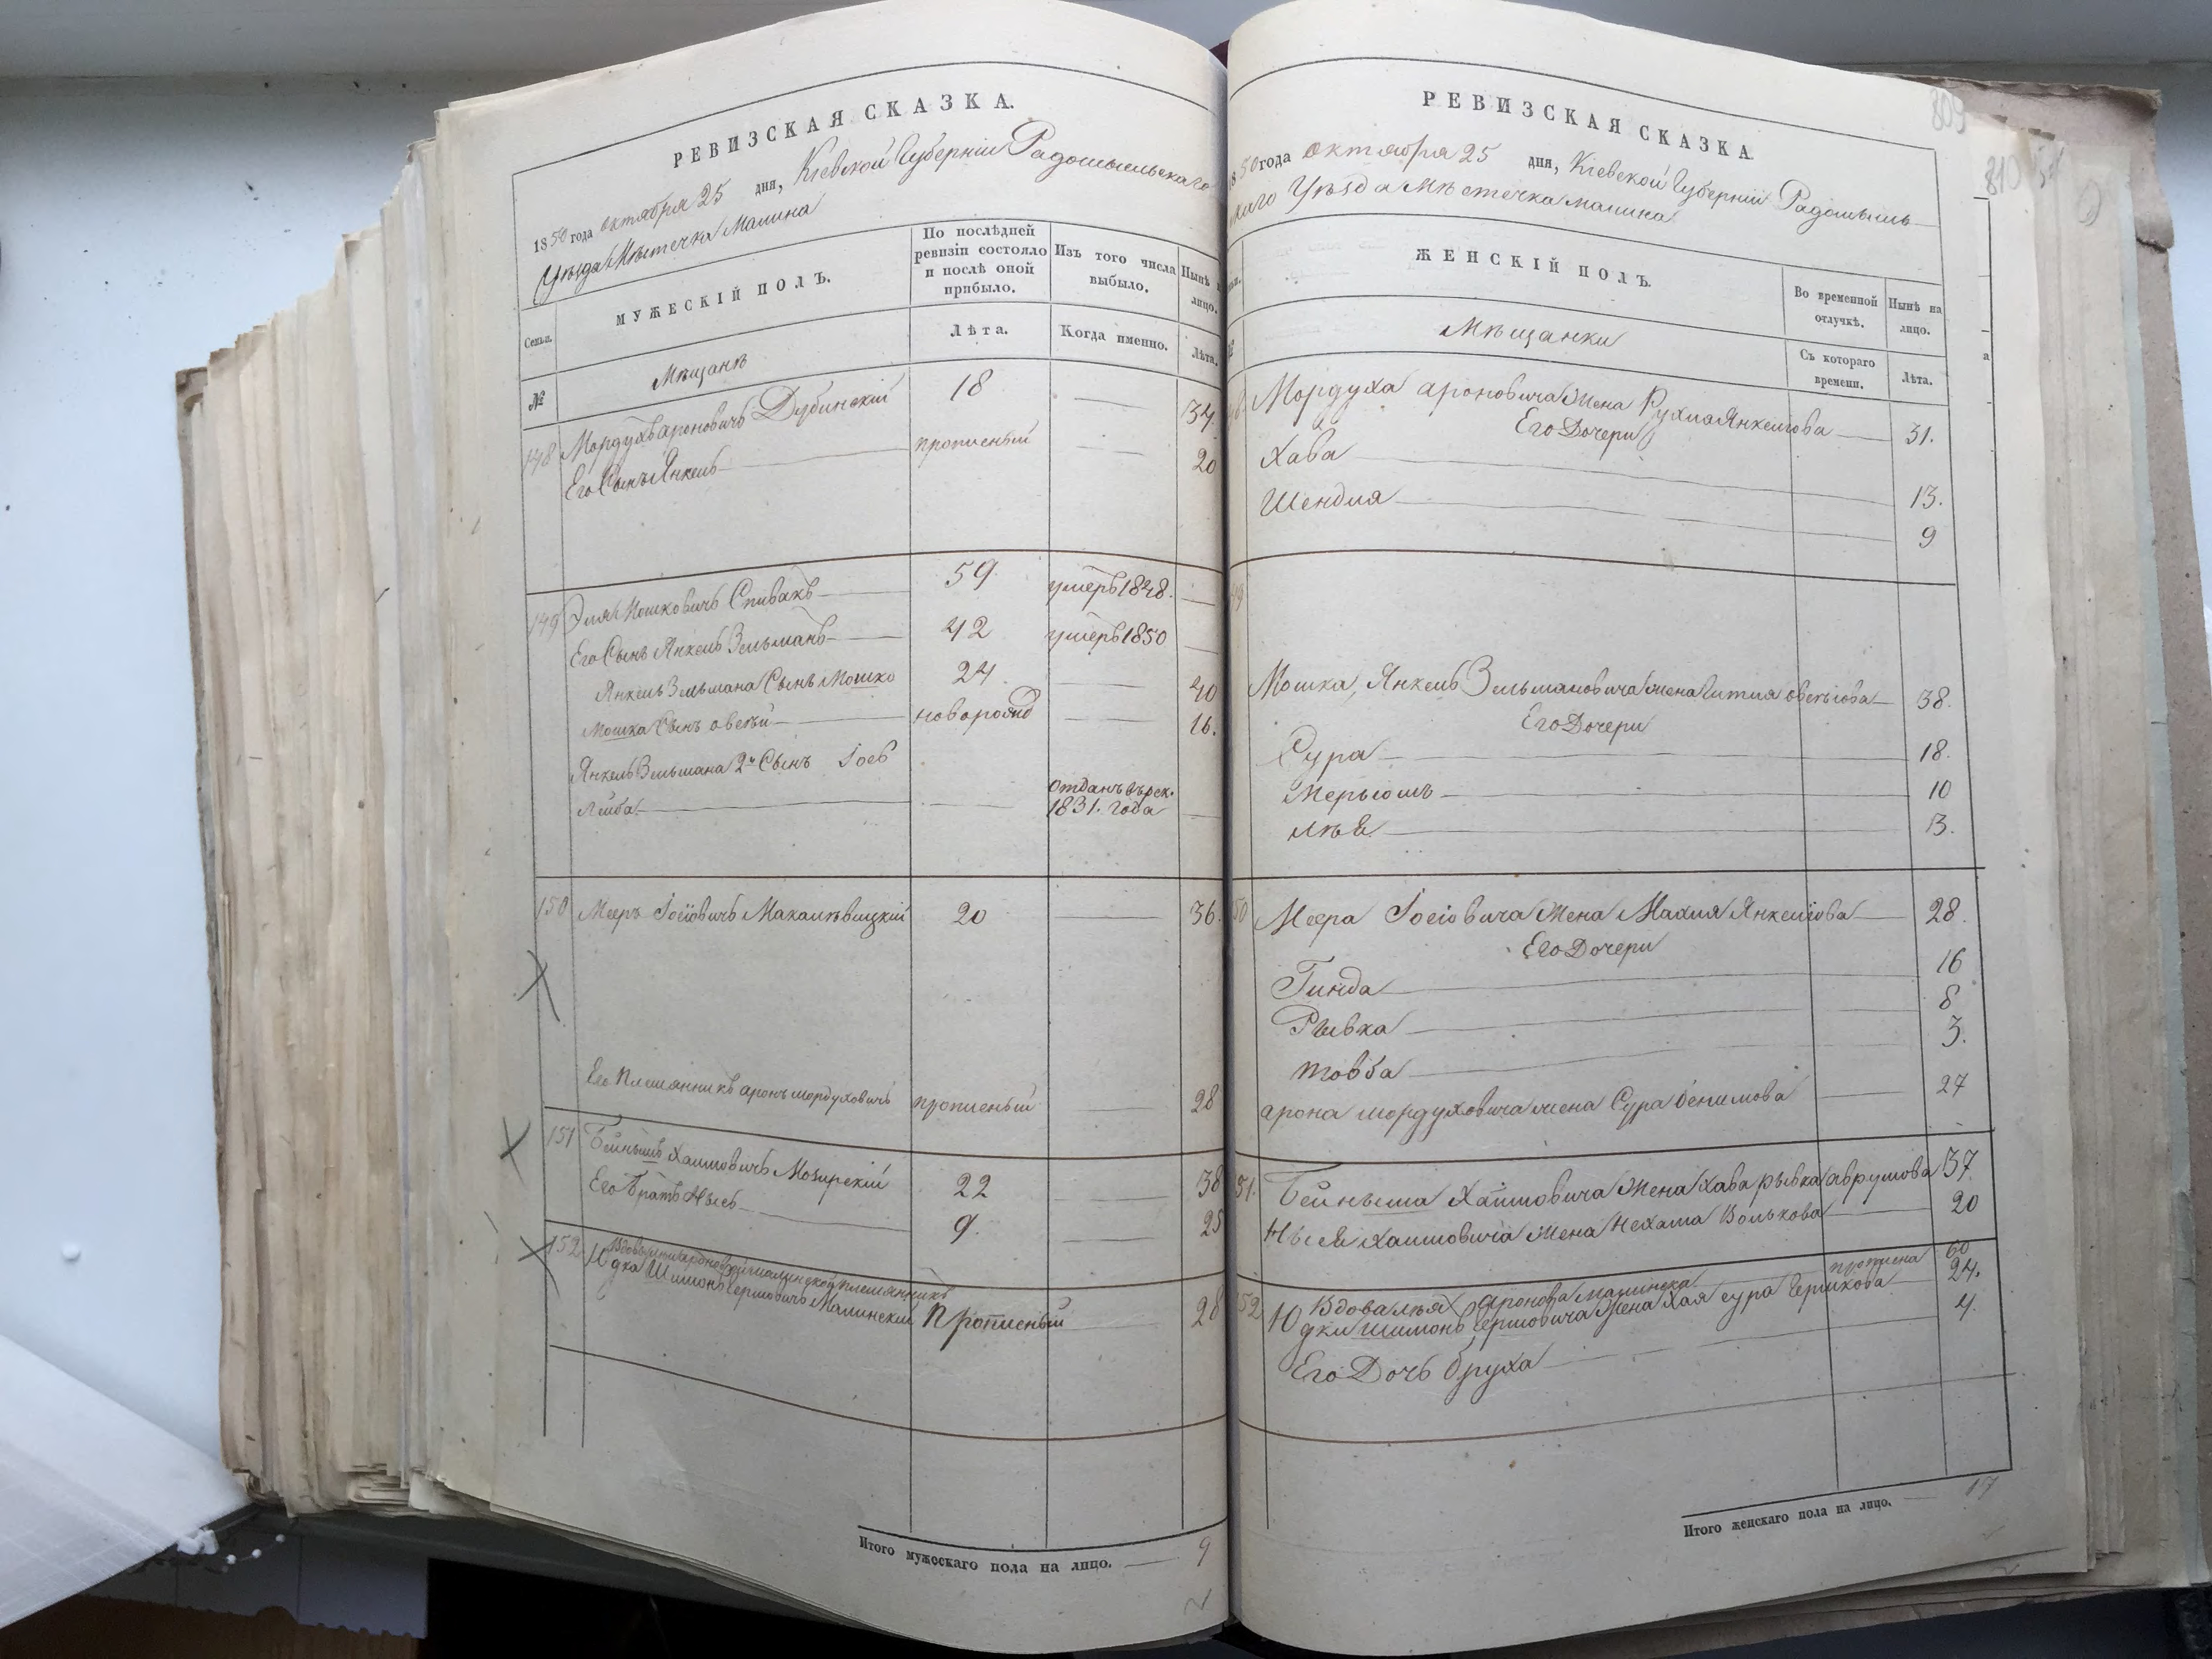 РЕВИЗСКАЯ СКАЗКА.
1850 года октября 25 дня, Кіевской Губерніи Радомысльскаго
Уѣзда Мѣстечка Малина
Семьи.
МУЖЕСКІЙ ПОЛЪ.
По послѣдней ревизіи состояло и послѣ оной прибыло.
Изъ того числа выбыло.
Нынѣ лицо.
№
Мѣщанъ
Лѣта.
Когда именно.
Лѣта.
148 Мордухъ Ароновичъ Дубинскій 18 — 34.
Его Сынъ Янкель — прописный — 20
149 Эля Мошковичъ Спивакъ — 59. умеръ 1848. —
Его Сынъ Янкель Зельманъ — 42 умеръ 1850 —
Янкель Зельмана Сынъ Мошко 24. — 40
Мошка Сынъ Овсѣй — новорожд — 16.
Янкель Зельмана 2й Сынъ Іосъ
Лейба — — отданъ в рек. 1831. года —
150 Мееръ Іосіовичъ Макалѣвицкій 20 — 36.
Его племянникъ аронъ мордуховичъ прописный — 28
151 Бейнышъ Хаимовичъ Мозирскій 22 — 38
Его братъ Нысь — 9. — 25
152 Юдка Шимонъ Гершовичъ Малинскій прописный — 28
Итого мужескаго пола на лицо. — 9
РЕВИЗСКАЯ СКАЗКА.
809
810
1850 года октября 25 дня, Кіевской Губерніи Радомысль-
скаго Уѣзда Мѣстечка Малина
ЖЕНСКІЙ ПОЛЪ.
Во временной отлучкѣ.
Нынѣ на лицо.
№
Мѣщанки
Съ котораго времени.
Лѣта.
Мордуха Ароновича жена Рухля Янкеліова — 31.
Его Дочери
Хава — 13.
Шендля — 9
Мошка, Янкель Зельмановича жена Гитля овсѣіова — 38.
Его Дочери
Сура — 18.
Мерьюмъ — 10
лѣя — 13.
50 Меера Іосіовича жена Малия Янкелиова — 28.
Его Дочери
Гинда — 16
Рывка — 8
товба — 3.
арона мордуховича жена Сура бенимова — 27
51. Бейныша Хаимовича жена хава рывка аврумова 37.
Нысея хаимовича жена Нехама Волькова — 20
52 Вдова лѣя аронова малинска прописна 60
Юдки шимонъ гершовича жена хая сура Гершкова — 24.
Его Дочь бруха — 4.
Итого женскаго пола на лицо. — 17